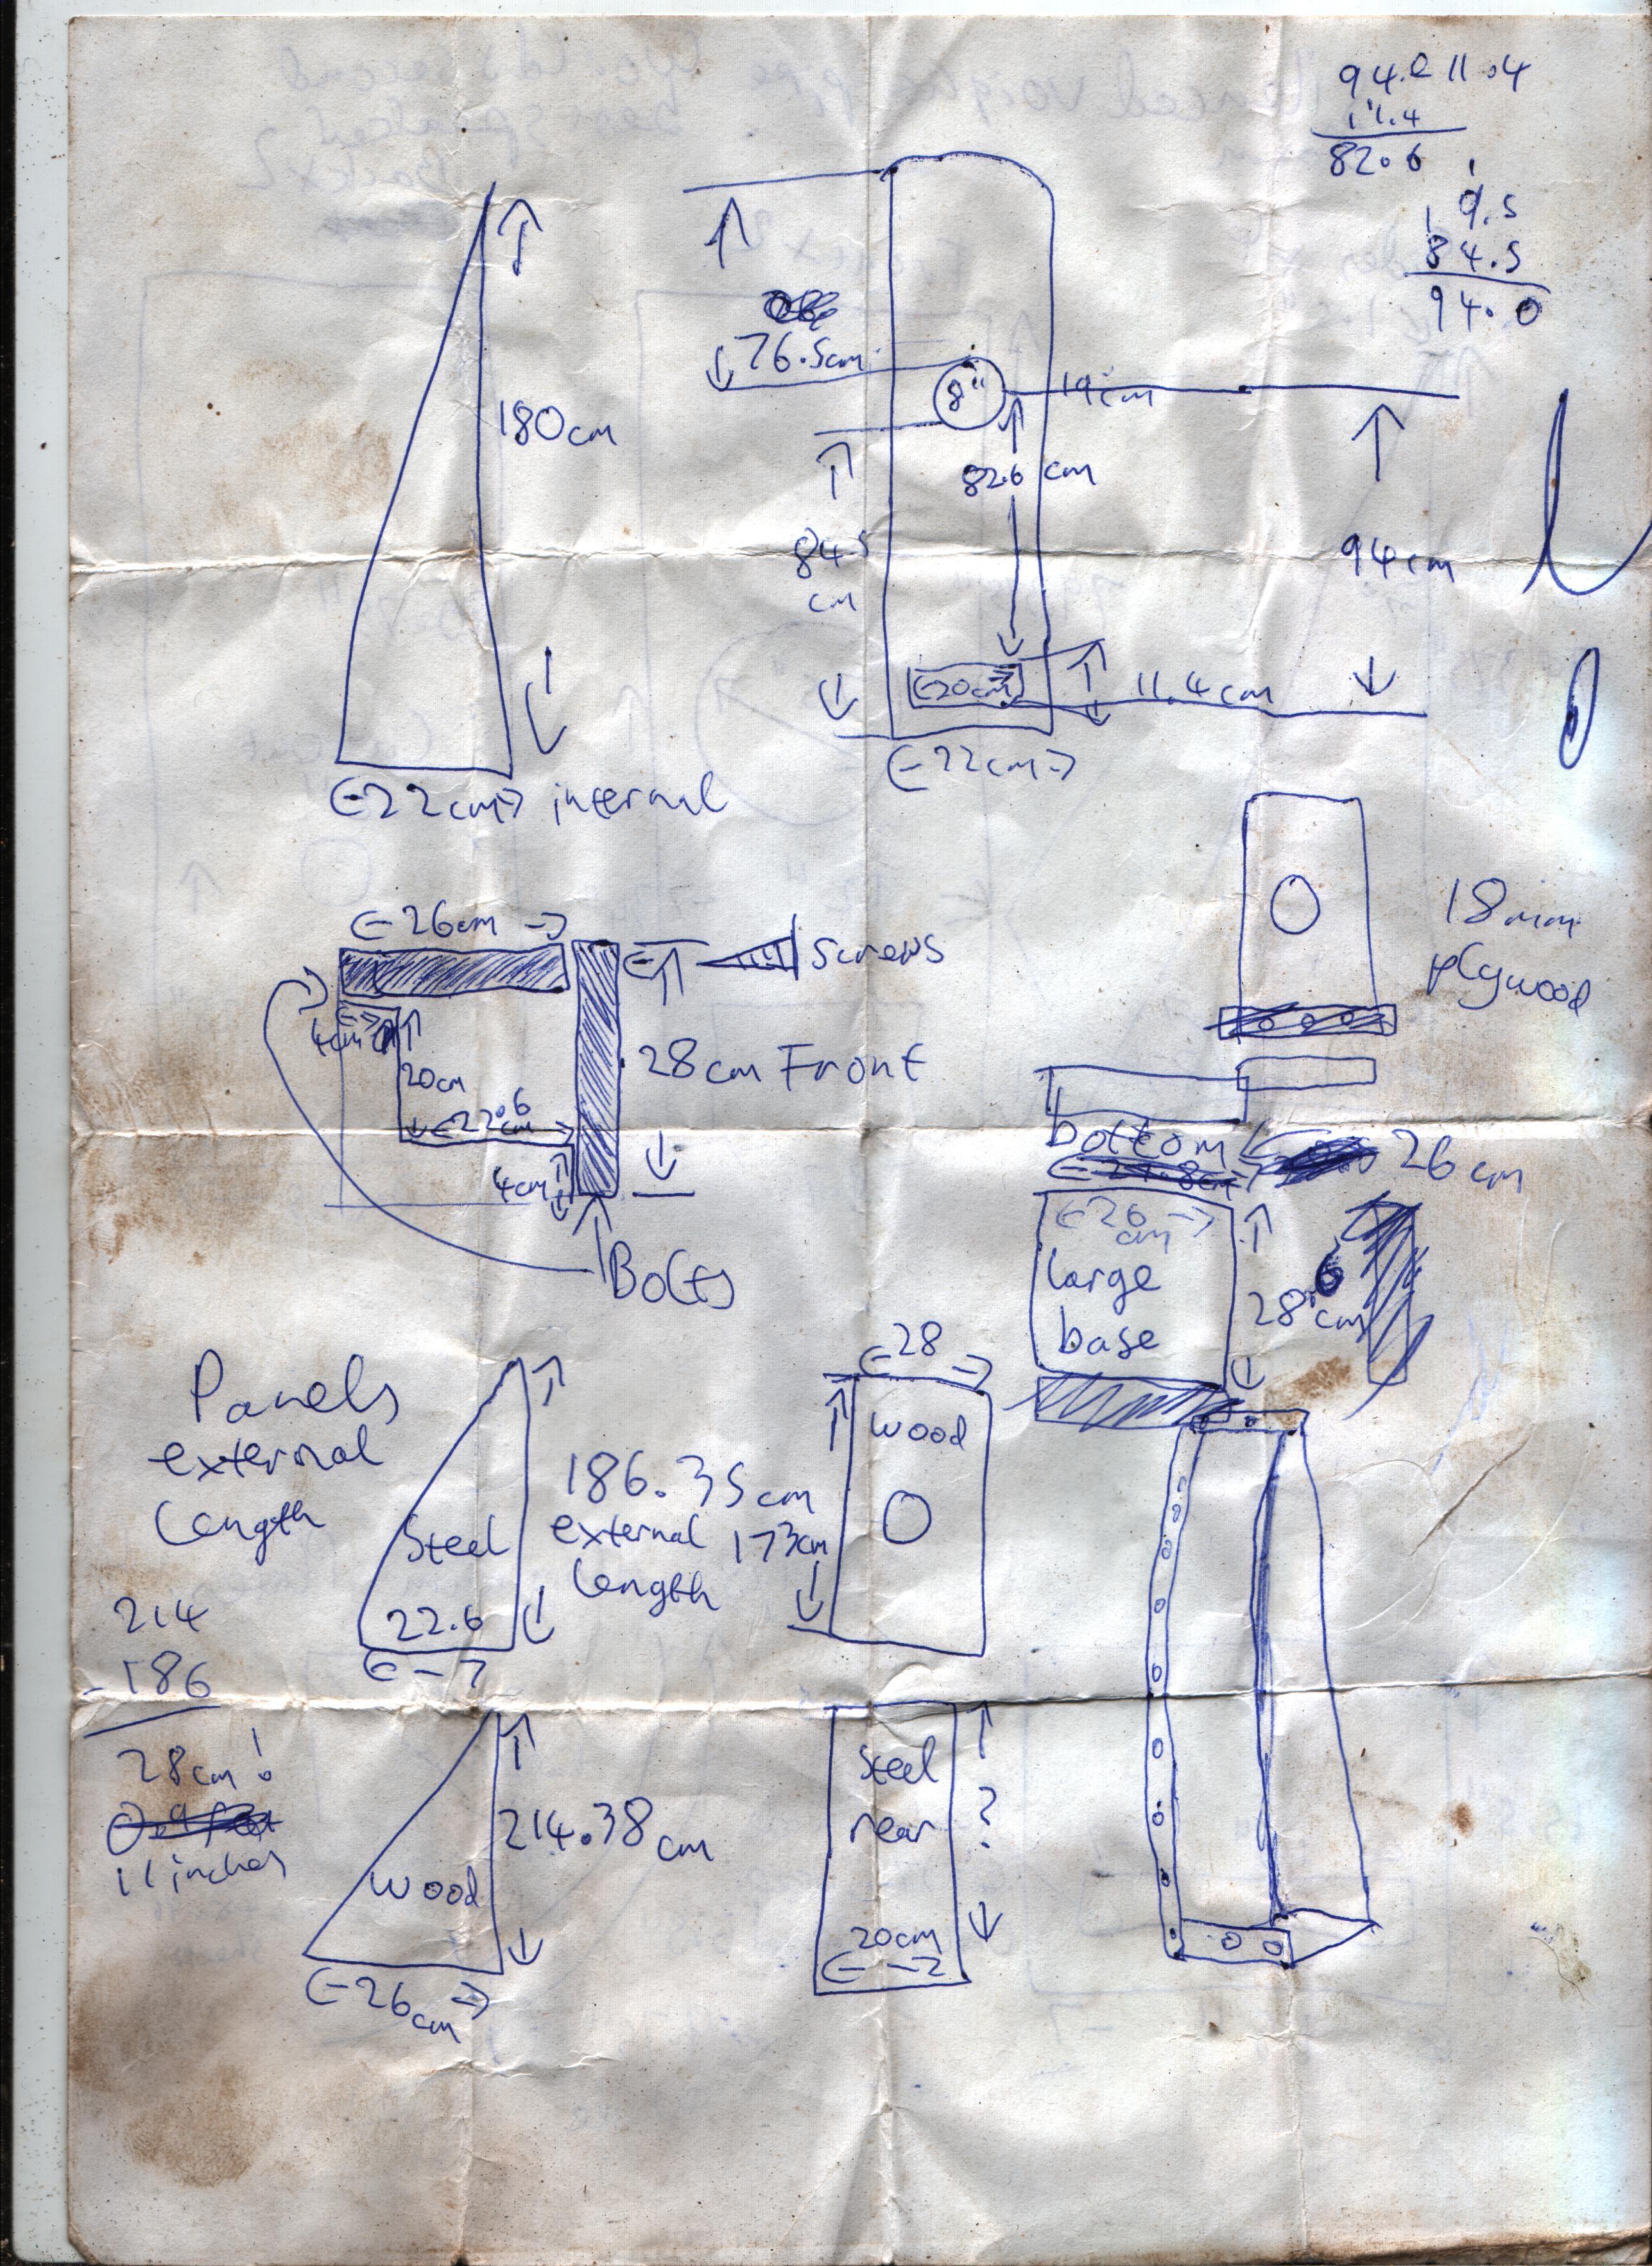 94.0 11.4
11.4
82.6
9.5
84.5
94.0
180cm
76.5cm
8"
19cm
82.6 cm
84.5
cm
94cm
20cm
11.4cm
22cm
22cm internal
26cm
screws
18mm
plywood
4cm
20cm
28cm Front
22.6
cm
4cm
Bolts
bottom
26cm
26
cm
large
base
28.6cm
28
wood
Panels
external
length
186.35cm
external
length
173cm
Steel
22.6
214
- 186
28cm!
11 inches
214.38cm
wood
26cm
Steel
rear
?
20cm